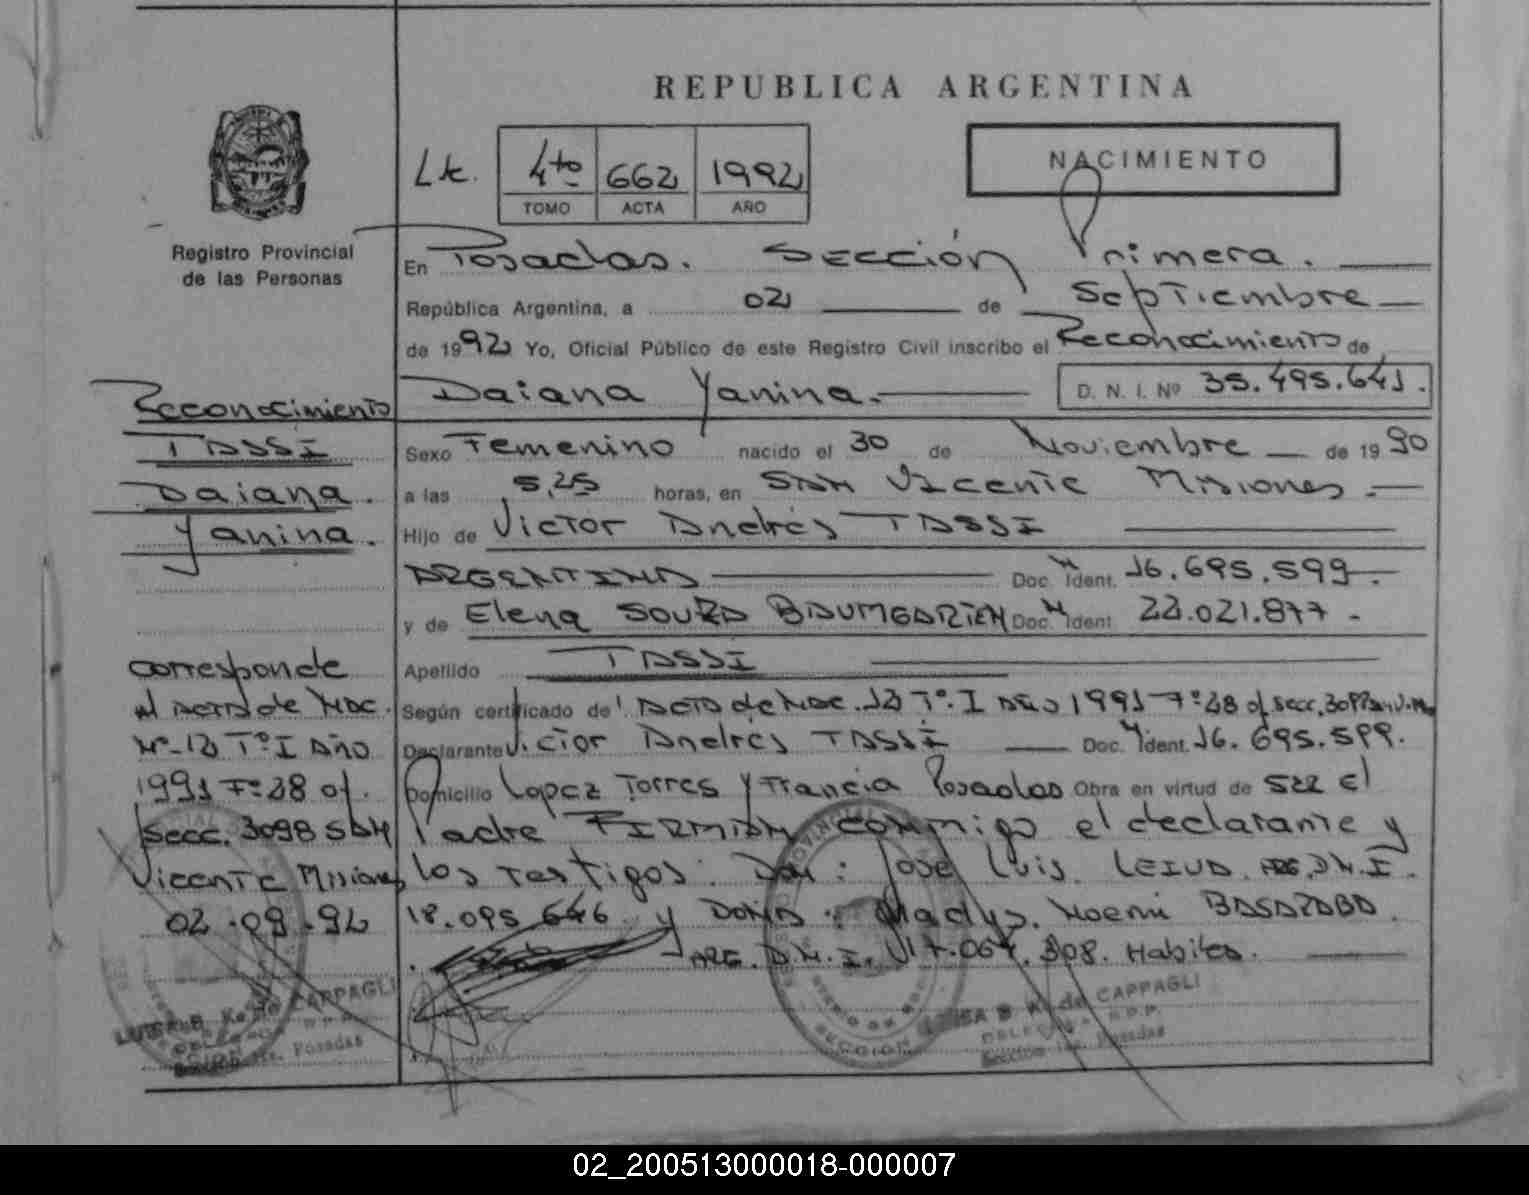 REPUBLICA ARGENTINA
NACIMIENTO
4to 662 1992
TOMO ACTA AÑO
Registro Provincial
de las Personas
En Posadas. Sección Primera.
República Argentina, a 02 de Septiembre
de 1992 Yo, Oficial Público de este Registro Civil inscribo el Reconocimiento de
Daiana Yanina. D. N. I. Nº 35.495.641.
Reconocimiento
TASSI
Daiana.
Yanina.
Sexo Femenino nacido el 30 de Noviembre de 1990
a las 5,25 horas, en SAN Vicente Misiones.
Hijo de Victor Andrés TASSI
ARGENTINA Doc. Ident. 16.695.599.
y de Elena SOUZA BAUMGARTEN Doc. Ident. 22.021.877.
Apellido TASSI
Según certificado de ACTA de Nac. 12 Tº. I Año 1991 Fº 28 of. Secc. 3098
Declarante Victor Andrés TASSI Doc. Ident. 16.695.599.
Domicilio Lopez Torres y Francia Posadas Obra en virtud de ser el
Padre FIRMAN conmigo el declarante y
los testigos: Don: José Luis LEIVA. ARG. D.N.I.
18.095.646 y DOÑA: Gladys Noemi BASARABA
ARG. D.N.I. 17.067.308. Habiles.
corresponde
al Acta de Nac.
Nº 12 Tº I Año
1991 Fº 28 of.
Secc. 3098 SAN
Vicente Misiones
02.09.92
LUISA B. K. de CAPPAGLI
Posadas
LUISA B K. de CAPPAGLI
DELEGADA R.P.P.
Sección 1ra. Posadas
02_200513000018-000007